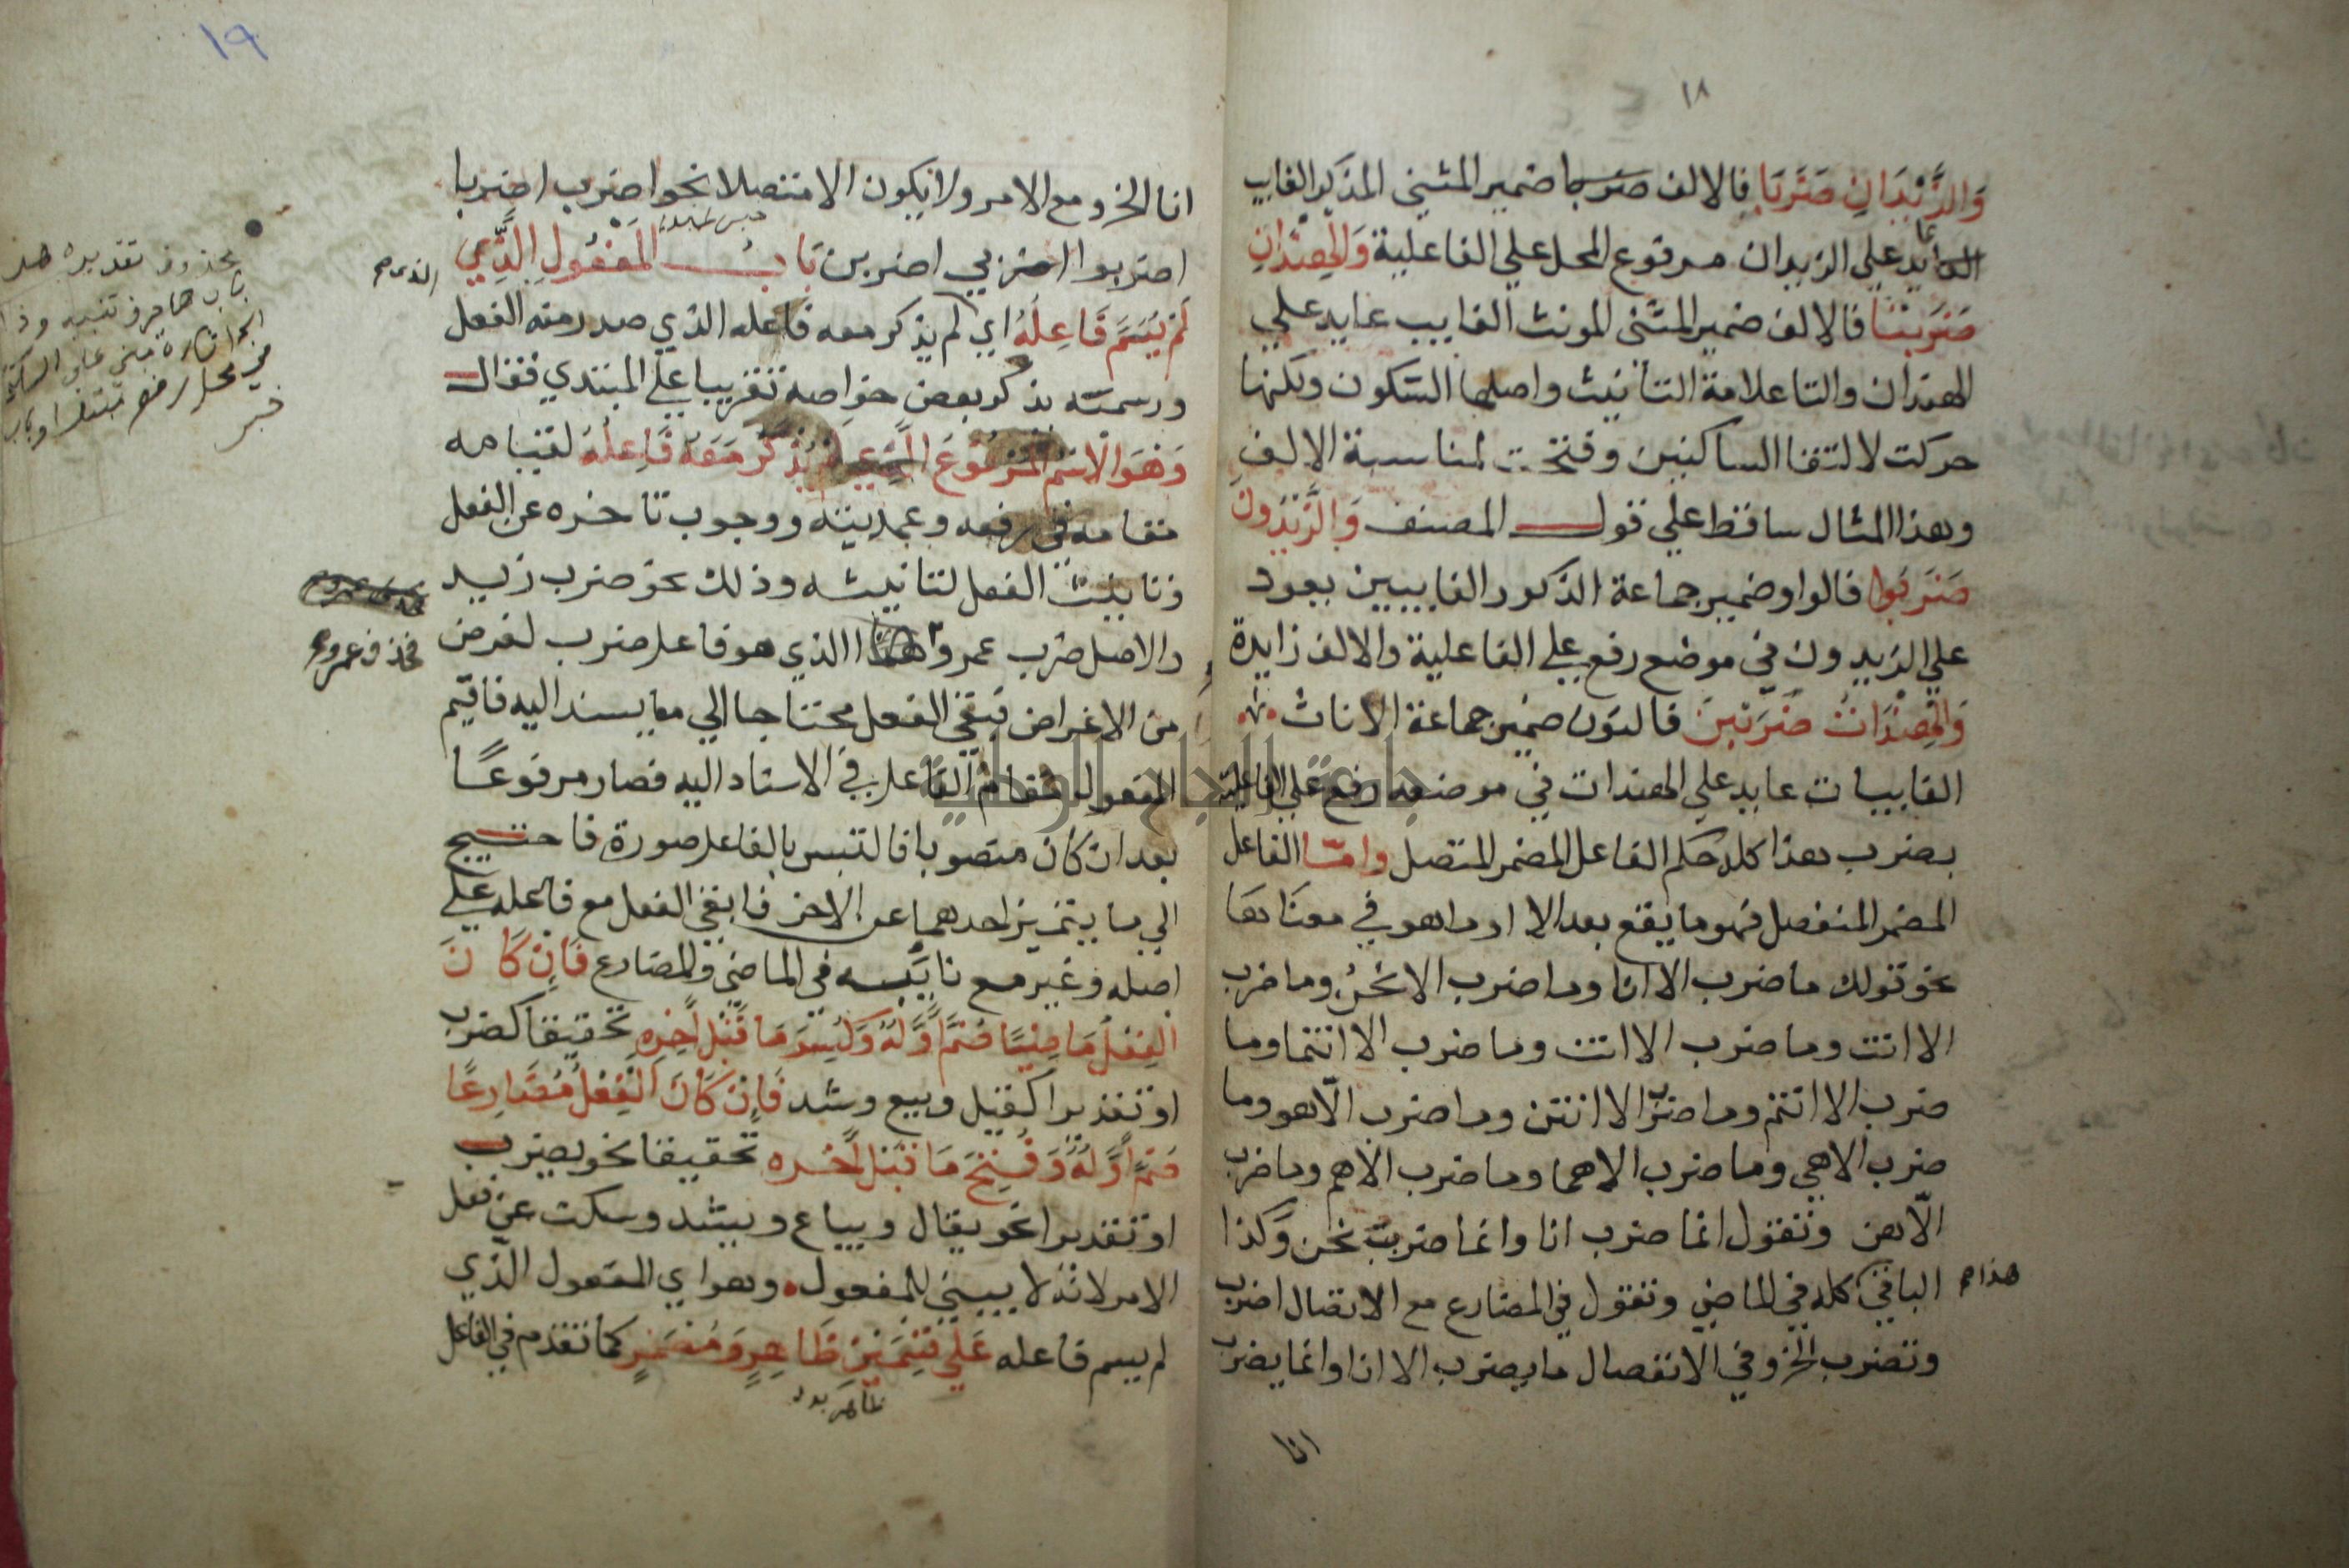 ١٨
وَالزَّيْدَانِ ضَرَبَا فالالف ضمير المثنى المذكر الغايب
عايد علي الزيدان مرفوع المحل علي الفاعلية وَالهِنْدَانِ
ضَرَبَتَا فالالف ضمير المثنى المونث الغايب عايد علي
الهندان والتا علامة التانيث واصلها السكون ولكنها
حركت لالتقا الساكنين وفتحت لمناسبة الالف
وهذا المثال ساقط علي قول المصنف وَالزَّيْدُونَ
ضَرَبُوا فالواو ضمير جماعة الذكور الغايبين يعود
علي الزيدون في موضع رفع علي الفاعلية والالف زايدة
وَالهِنْدَاتُ ضَرَبْنَ فالنون ضمير جماعة الاناث
الغايبات عايد علي الهندات في موضع رفع علي الفاعلية
بضرب هذا كله حكم الفاعل المضمر المتصل واما الفاعل
المضمر المنفصل فهو ما يقع بعد الا او ما هو في معناها
نحو قولك ما ضرب الا انا وما ضرب الا نحنُ وما ضرب
الا انت وما ضرب الا انت وما ضرب الا انتما وما
ضرب الا انتم وما ضرب الا انتن وما ضرب الّا هو وما
ضرب الا هي وما ضرب الا هما وما ضرب الا هم وما ضرب
الّا هن وتقول انما ضرب انا وانما ضرب نحن وكذا
الباقي كله في الماضي وتقول في المضارع مع الاتصال اضرب
هذا صح
وتضرب الخ وفي الانفصال ما يضرب الا انا وانما يضرب
انا
١٩
انا الخ ومع الامر ولا يكون الا متصلا نحو اضرب اضربا
اضربوا اضربي اضربن بَابُ المَفْعُولِ الَّذِي
لَمْ يُسَمَّ فَاعِلُهُ اي لم يذكر معه فاعله الذي صدر منه الفعل
ورسمته بذكر بعض خواصه تقريبا علي المبتدي فقال
وَهُوَ الْاسْمُ الْمَرْفُوعُ الَّذِي لَمْ يُذْكَرْ مَعَهُ فَاعِلُهُ لقيامه
مقامه في رفعه وعمديته ووجوب تاخره عن الفعل
وتانيث الفعل لتانيثه وذلك نحو ضرب زيد
والاصل ضرب عمرو الذي هو فاعل ضرب لغرض
فحذف عمرو صح
من الاغراض فبقي الفعل محتاجا الي ما يسند اليه فاقيم
المفعول مقام الفاعل في الاسناد اليه فصار مرفوعًا
بعد ان كان منصوبا فالتبس بالفاعل صورة فاحتيج
الي ما يتميز احدهما عن الاخر فابقي الفعل مع فاعله علي
اصله وغير مع نايبه في الماضي والمضارع فَانْ كَانَ
الْفِعْلُ مَاضِيًا ضُمَّ اَوَّلُهُ وَكُسِرَ مَا قَبْلَ اَخِرِهِ تحقيقا كضرب
او تقديرا كقيل وبيع وشد فَاِنْ كَانَ الْفِعْلُ مُضَارِعًا
ضُمَّ اَوَّلُهُ وَفُتِحَ مَا قَبْلَ اَخره تحقيقا نحو يضرب
او تقديرا نحو يقال ويباع ويشد وسكت عن فعل
الامر لانه لا يبنى للمفعول وهو اي المفعول الذي
لم يسم فاعله عَلَي قِسْمَيْنِ ظَاهِرٍ وَمُضْمَرٍ كما تقدم في الفاعل